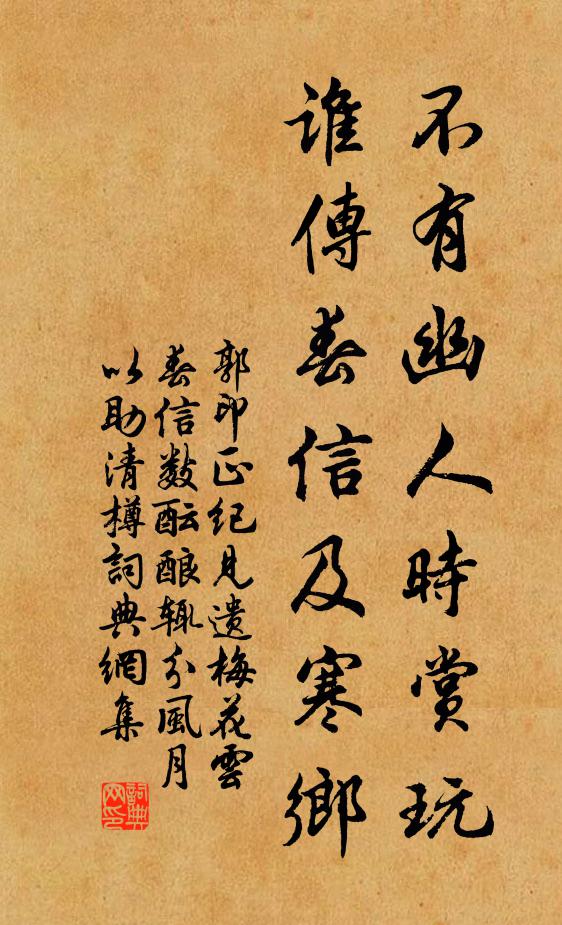 不有幽人時賞玩
誰傳春信及寒鄉
郭印正紀見遺梅花雲
春信數酝酿辄分風月
以助清樽詞典網集
詞典网印